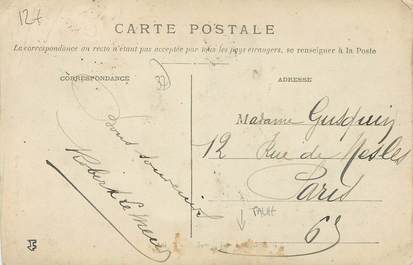 12+
CARTE POSTALE
La correspondance au recto n'étant pas acceptée par tous les pays étrangers, se renseigner à la Poste
CORRESPONDANCE
ADRESSE
Bons souvenirs
Robert Le
Madame Gusquin
12 Rue de Nesles
Paris
6e